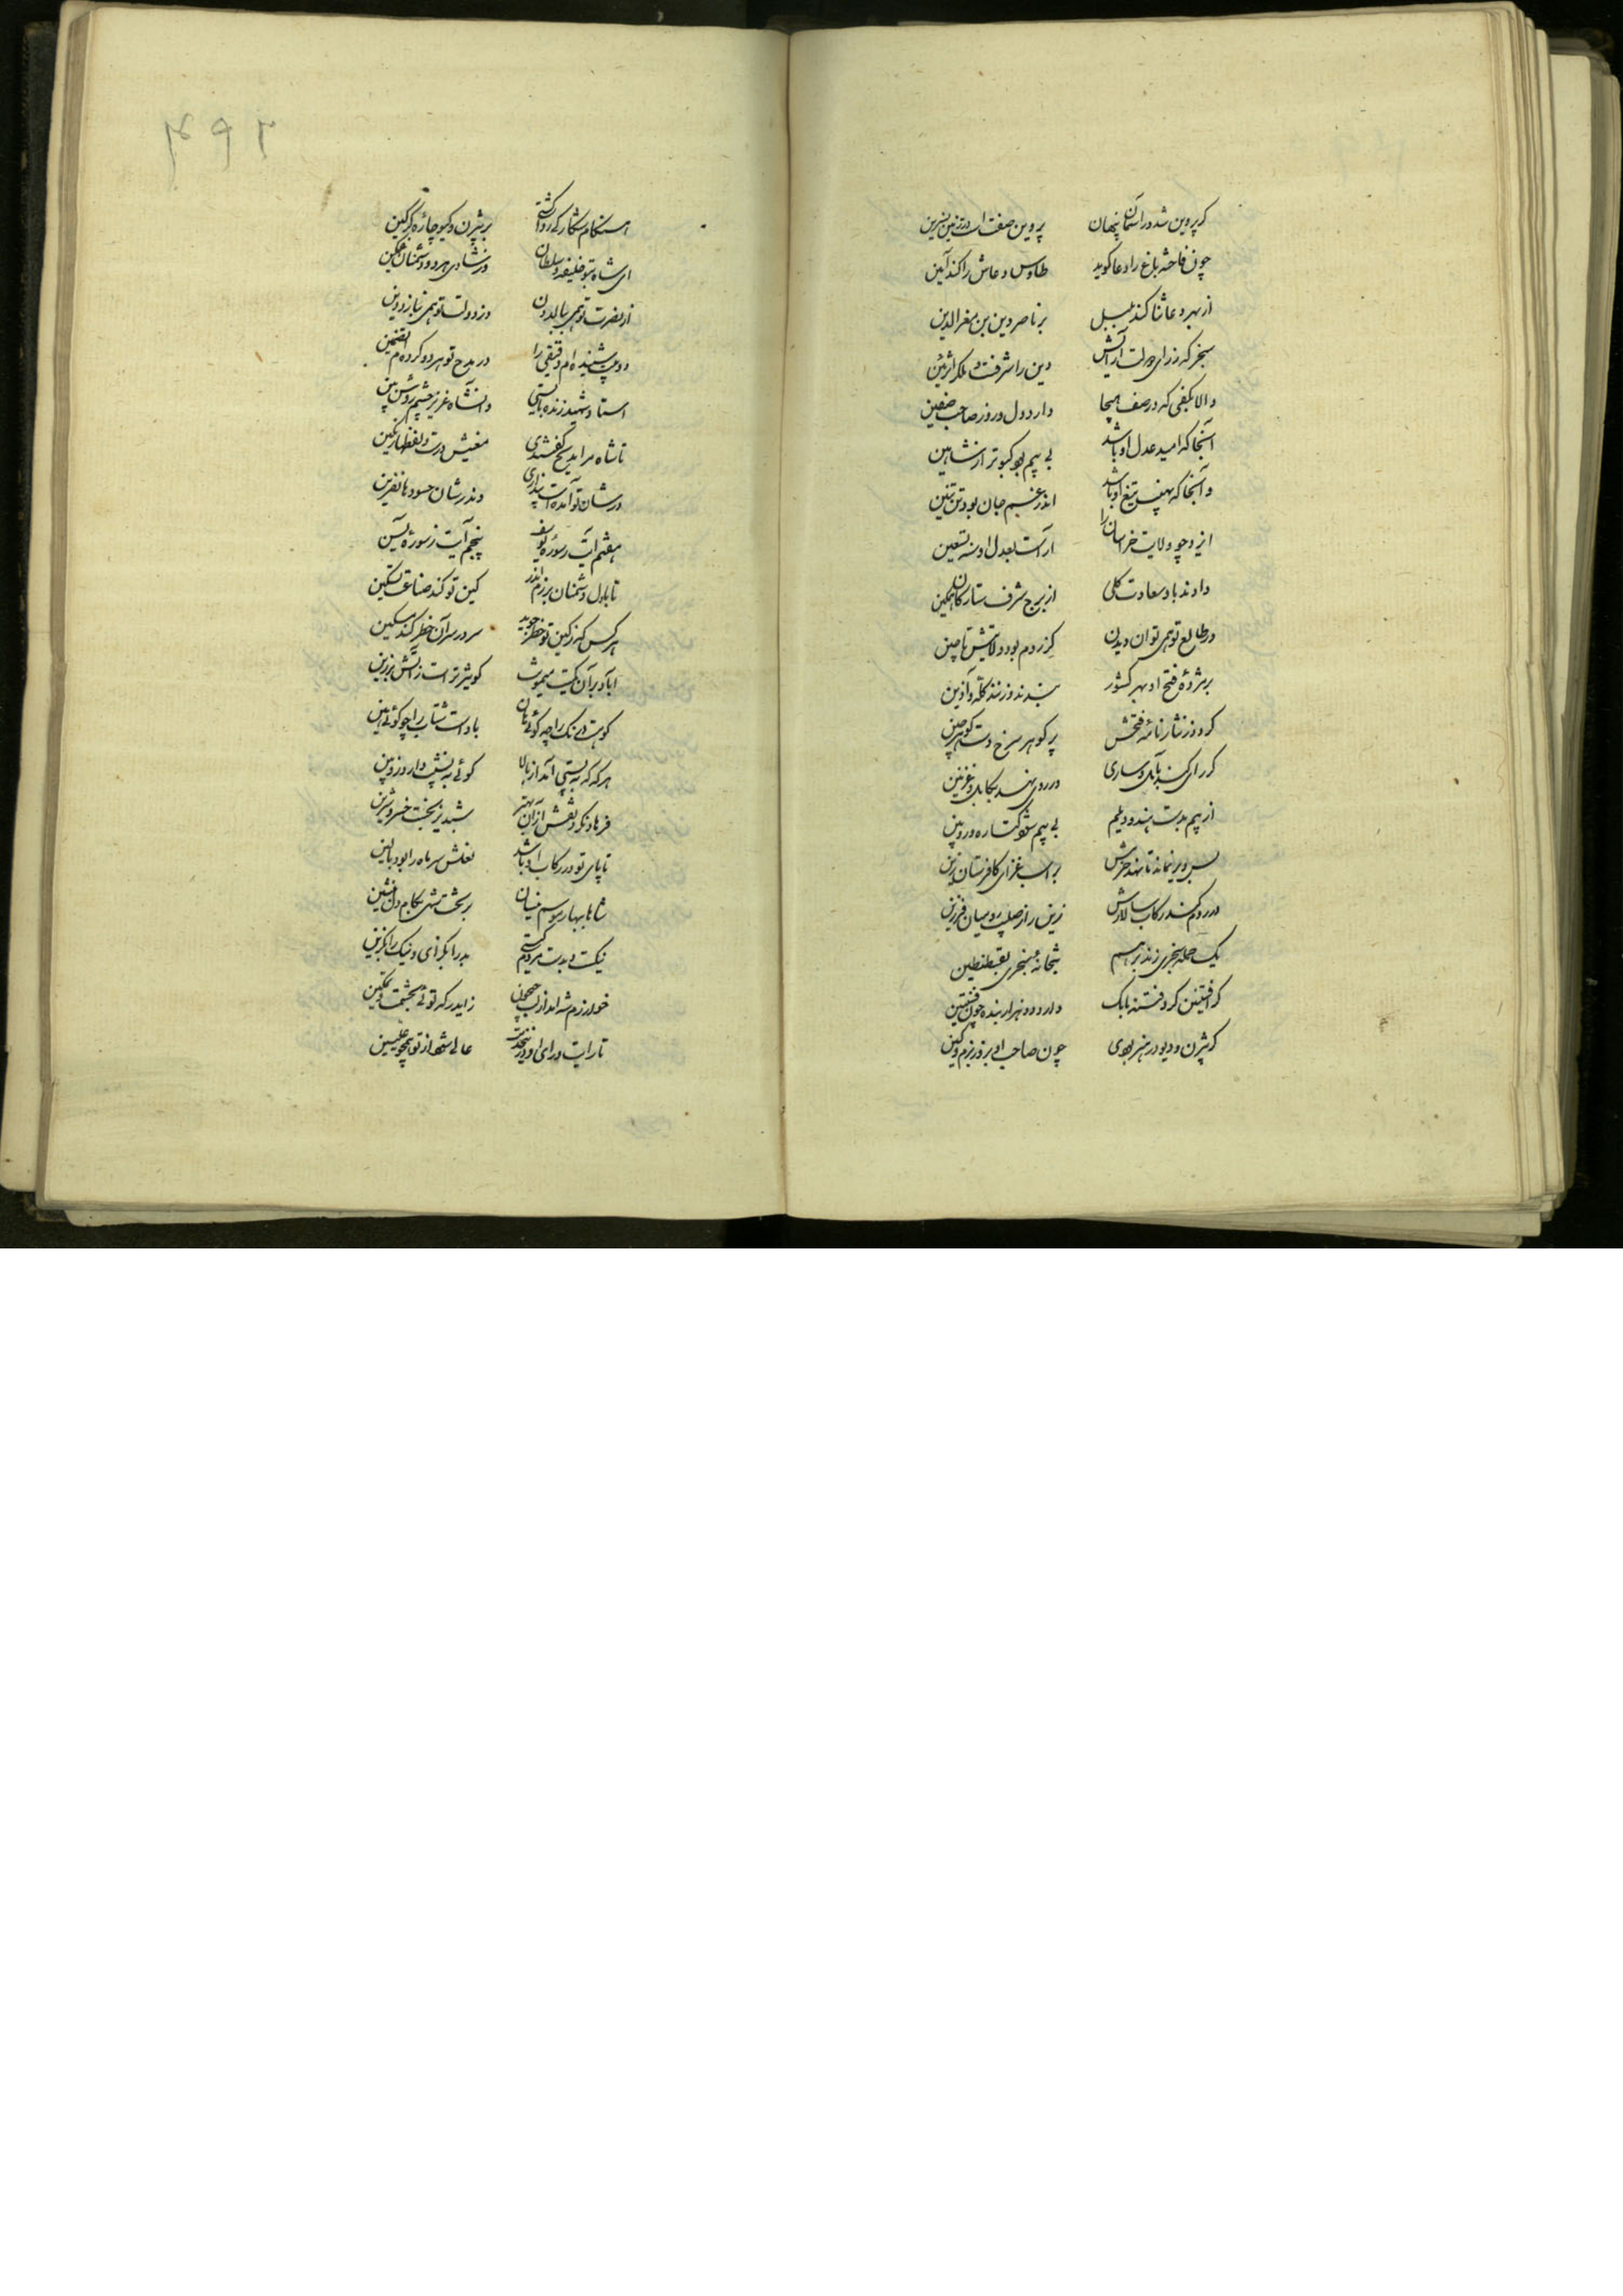 کر پروین شد در آسمان پنهان پروین صفت است در زمین نسرین
چون فاخته باغ را دعا گوید طاوس دعاش را کند آمین
از بهر دعا ثنا کند بلبل بر ناصر دین بن معزالدین
سنجر که ز رای دولت آرایش دین را شرفست و ملک را تزئین
والا بکفی که در صف هیجا دارد دل و زور صاحب صفین
آنجا که امید عدل او باشد بی بیم بود کبوتر از شاهین
و آنجا که نهیب تیغ او باشد اندر غم جان بود تن تنین
ایزد چو ولایت خراسان را آراست بعدل او
دادند باو سعادت کلی از برج شرف ستارکان همکین
در طالع تو همی توان دیدن کز روم بود ولایتش تا چین
بر مژده فتح او بهر کشور بندند و زنند کله و آذین
کردد ز نثار نامه فتحش پر کوهر سرخ دست کوهرچین
کر رای کند بآمل و ساری در روی نهد بکابل و غزنین
از بیم بدست هندو و دیلم بی بیم شود کتاره و زوبین
بس دیر نماند تا نهد حزمش بر اسب غزای کافرستان زین
در روم کند رکاب سالارش زین را ز صلیب رومیان فرزین
یک حمله سنجری زند بر هم بتخانه قیصری بقسطنطین
کر افشین کرد فتنه بابک دارد دو هزار بنده چون افشین
کر بیژن و دیو در هنر بودی چون صاحب او بروز بزم و کین
هنگام شکار کی روا کشتی بر بیژن و کیو چاره کرکین
ای شاه بتو خلیفه و سلطان در شادی هر دو دشمنان غمکین
از نصرت تو همی ببالد آن وز دولت تو همی بنازد این
دو بیت شنیده ام دقیقی را در مدح تو هر دو کرده ام تضمین
استاد شهید زنده بایستی و آن شاعر تیره چشم روشن بین
تا شاه مرا مدیح کفتندی معنیش درست و لفظها رنکین
در شان تو آمده است پنداری وندر شان حسود با نفرین
هفتم آیت ز سوره یوسف پنجم آیت ز سوره یاسین
تا با دل دشمنان برزم اندر کین تو کند صناعت سکین
هر کس که ز کین تو خطر جوید سر در سر آن خطر کند مسکین
آباد بر آن کمیت میمونت کو تیزتر است ز آتش برزین
کوهست درنک را چو کوئی هان باد است شتاب را چو کوئی هین
هر که که به پستی آید از بالا کوئی به نشیب دارد
فرهاد نکرد نقش از آن بهتر شبدیز بتخت خسرو و شیرین
تا پای تو در رکاب او باشد نعلش سر ماه را بود بالین
شاها ببهار و موسم نیسان بر تخت شهی بکام دل بنشین
نیک و بد تست مردم کیتی بد را بکزای و نیک را بکزین
خوارزم شه آمد از لب جیحون زایدر که توئی بحشمت و تمکین
تا رایت و رای او در خدمت عالی شود از تو همچو علیین